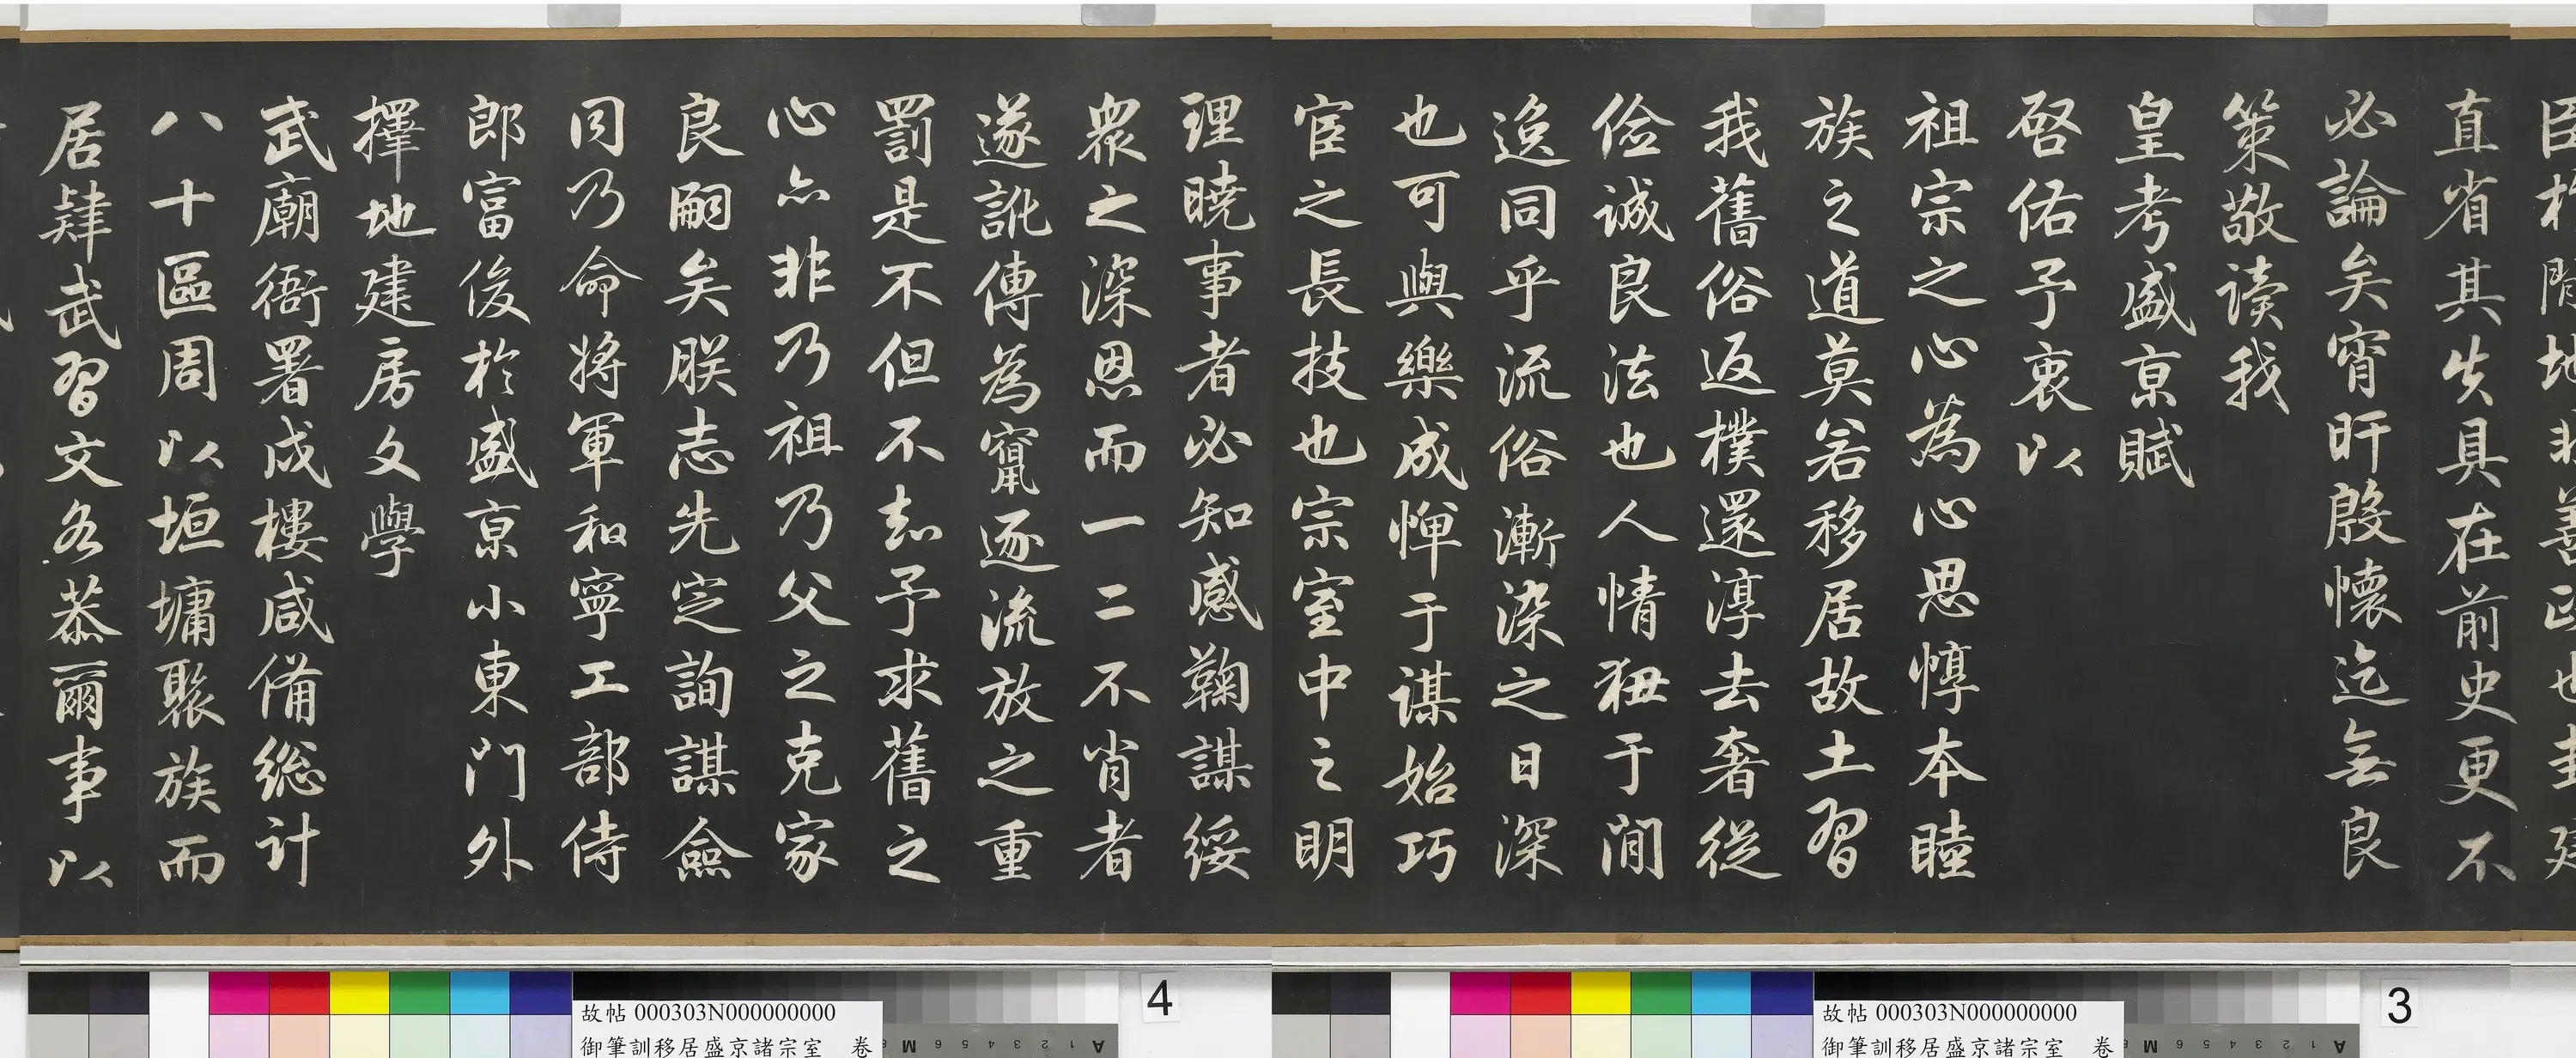 直省其失具在前史更不
必論矣宵旰殷懷迄無良
策敬讀我
皇考盛京賦
啓佑予衷以
祖宗之心為心思惇本睦
族之道莫若移居故土習
我舊俗返樸還淳去奢從
儉誠良法也人情狃于閒
逸同乎流俗漸染之日深
也可與樂成憚于謀始巧
宦之長技也宗室中之明
理曉事者必知感鞠謀綏
衆之深恩而一二不肖者
遂訛傳為竄逐流放之重
罰是不但不知予求舊之
心亦非乃祖乃父之克家
良嗣矣朕志先定詢謀僉
同乃命將軍和寧工部侍
郎富俊於盛京小東門外
擇地建房文學
武廟衙署戍樓咸備總計
八十區周以垣墉聚族而
居肄武習文各恭爾事以
3
故帖 000303N000000000
御筆訓移居盛京諸宗室 卷
4
故帖 000303N000000000
御筆訓移居盛京諸宗室 卷